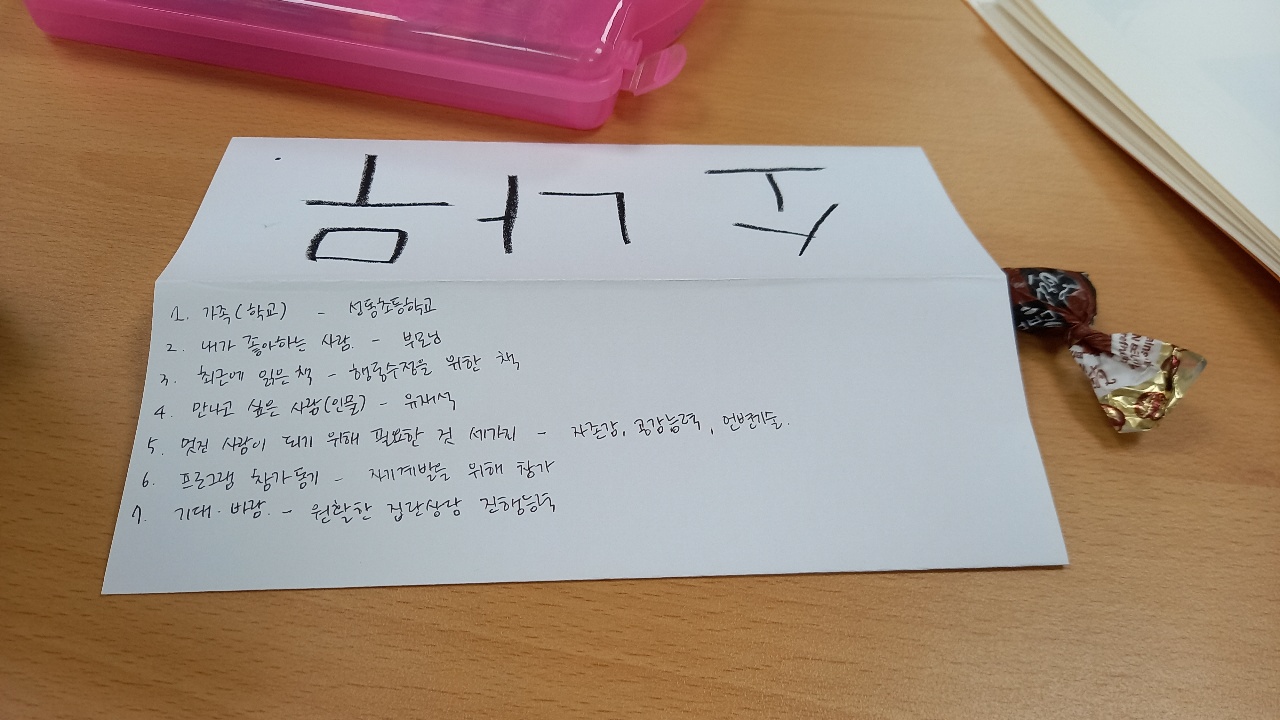 소나무
1. 가족(학교) - 선동초등학교
2. 내가 좋아하는 사람 - 부모님
3. 최근에 읽은 책 - 행동수정을 위한 책
4. 만나고 싶은 사람(인물) - 유재석
5. 멋진 사람이 되기 위해 필요한 것 세가지 - 자존감, 공감능력, 언변기술.
6. 프로그램 참가동기 - 자기계발을 위해 참가
7. 기대·바람. - 원활한 집단상담 진행능력